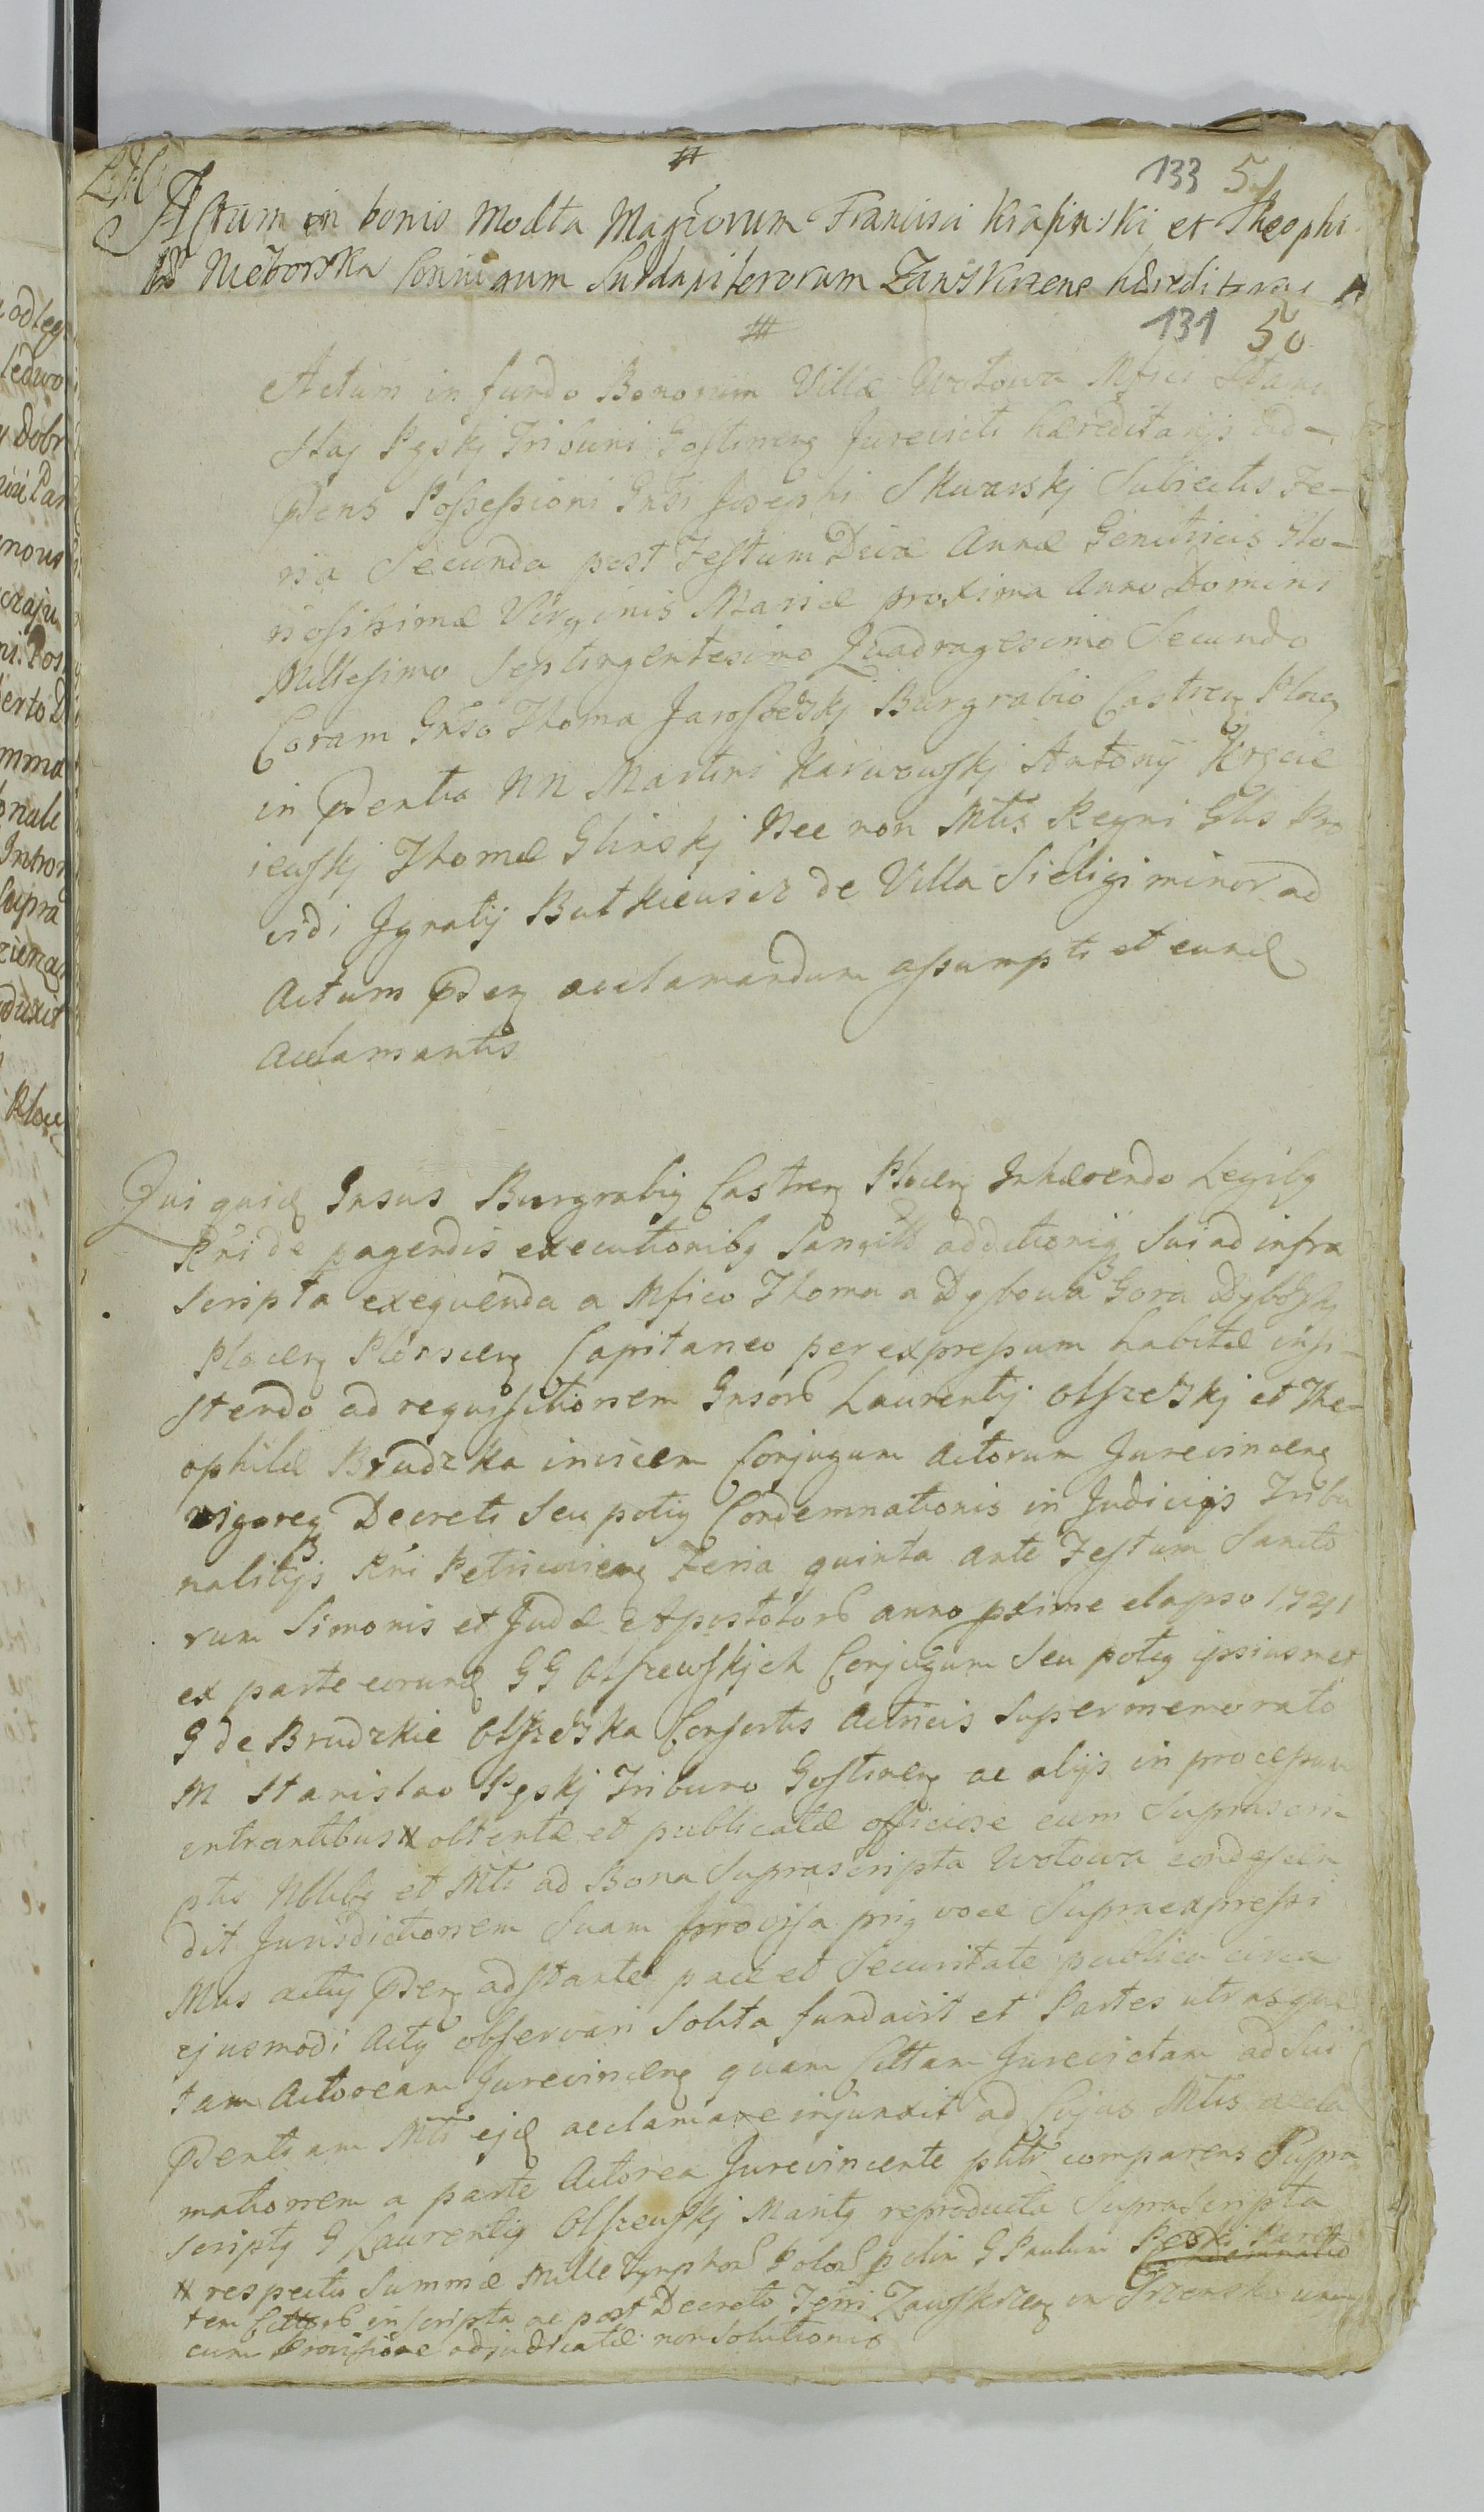 133 51
Actum in bonis Modła Magcorum Francisci Krasinski et Theophi
Nieborska Coniugum Subdapiferorum Zawskrzens hæreditariis
131 50
Actum in fundo Bonorum Villæ Wołowa Mfici Stani
slaj Pgskj Tribuni Gostinens Jurevicti hæreditarijs ad
pdens Possessioni Gnsi Josephi Skwarskj Subiectis Fe-
ria Secunda post Festum Divæ Annæ Genitricis Glo-
riosissimæ Virginis Mariæ proxima Anno Domini
Millesimo Septingentesimo Quadragesimo Secundo
Coram Gnso Thoma Jaroszewskj Burgrabio Castren Plocen
in pdentia NN Martini Karwowskj Antonij
iewskj Thomæ Glinskj Nec non Mtis Regni Glis Pro
vidi Ignatij Butkiewicz de Villa Sieligi minor ad
Actum pden acclamandum assumpti et eund
Acclamantis
Qui quid Gnsus Burgrabig Castren Plocen Inhærendo Legibg
Rni de pagendis executionibg Sancitis additionig Sui ad infra
Scripta exequenda a Mfico Thoma a Dybowa Gora
Plocen Płonscen Capitaneo per expressum habitæ insi-
stendo ad requisitionem Gnsorum Laurentij Olszewskj et The-
ophilæ Brudzka invicem Conjugum Actorum Jurevincen
vigoreg Decreti Seu potig Condemnationis in Judicijs Tribu
nalitijs Rni Petricovien Feria quinta ante Festum Sancto
rum Simonis et Judæ Apostolorum anno pxime elapso 1741
ex parte eorund GG Olszewskich Conjugum Seu potig ipsiusmet
G de Brudzkie Olszewska Consortis Actricis Supermemorato
M Stanislao Pgskj Tribuno Gostinen ac alijs in processum
intrantibus # obtentæ et publicatæ officiose cum Suprascri-
ptis Nblibg et Mti ad Bona Suprascripta Wołowa condescen
dit Jurisdictionem Suam provisa prig voce Supraexpressi
Mtis actuj pden adstante pace et Securitate publica circa
ejusmodi Actg observari Solita fundavit et Partes utrasque
tam Actoream Jurevincen quam Cittam Jurevictam ad Sui
pdentiam Mti ejd acclamare injunxit ad Cujus Mtis accla
mationem a parte Actorea Jurevincente pltr comparens Supra
scriptg G Laurentig Olszewskj Maritg reproducta Suprascripta
# respectu Summæ Mille Tynphorum G Paulum
tem inscripta ac post Decreto Terri Zawskrzen in Srzensko una
cum Provisione adjudicatæ non Solutionis